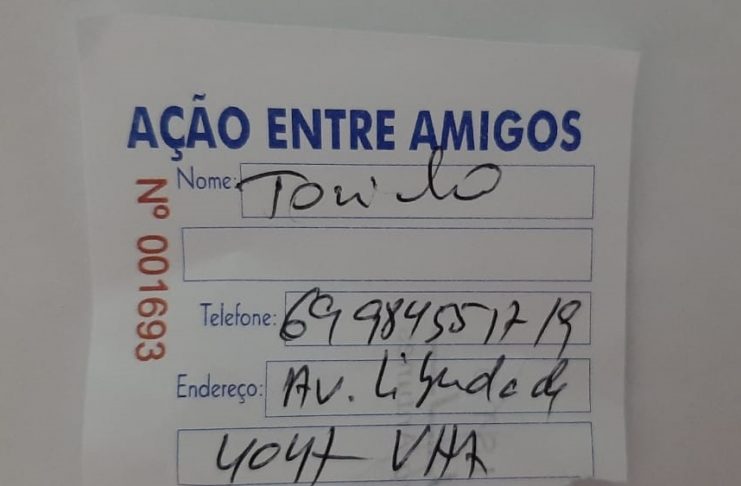 AÇÃO ENTRE AMIGOS
Nº 001693
Nome:
Telefone: 69 984551719
Endereço: Av. Liberdade
4047 VHA